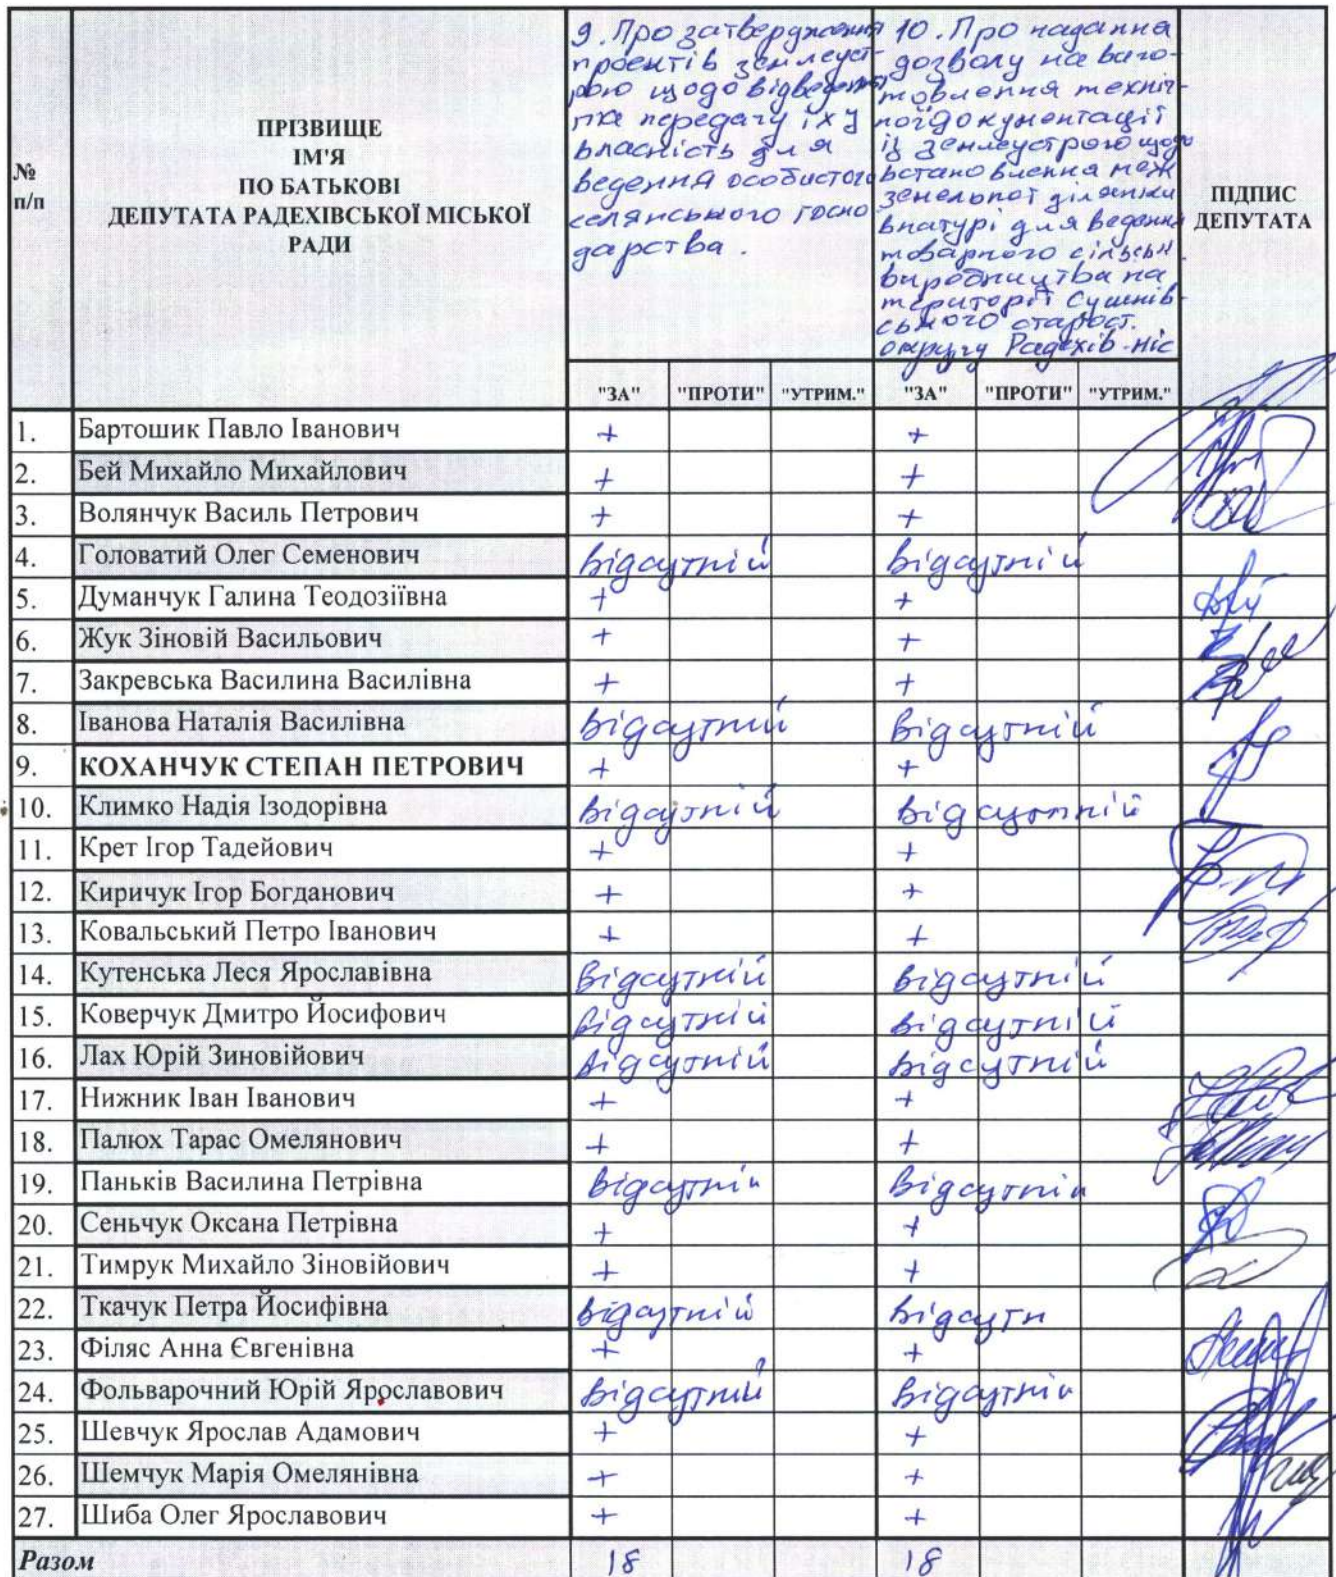 №
п/п
ПРІЗВИЩЕ
ІМ'Я
ПО БАТЬКОВІ
ДЕПУТАТА РАДЕХІВСЬКОЇ МІСЬКОЇ
РАДИ
9. Про затвердження
проектів землеуст-
рою щодо відведення
та передачу їх у
власність для
ведення особистого
селянського госпо
дарства.
10. Про надання
дозволу на виго-
товлення техніч-
ної документації
із землеустрою щодо
встановлення меж
земельної ділянки
в натурі для ведення
товарного сільськ.
виробництва на
території Сушнів-
ського старост.
округу Радехів. міс
ПІДПИС
ДЕПУТАТА
"ЗА" "ПРОТИ" "УТРИМ." "ЗА" "ПРОТИ" "УТРИМ."
1. Бартошик Павло Іванович + +
2. Бей Михайло Михайлович + +
3. Волянчук Василь Петрович + +
4. Головатий Олег Семенович відсутній відсутній
5. Думанчук Галина Теодозіївна + +
6. Жук Зіновій Васильович + +
7. Закревська Василина Василівна + +
8. Іванова Наталія Василівна відсутній відсутній
9. КОХАНЧУК СТЕПАН ПЕТРОВИЧ + +
10. Климко Надія Ізодорівна відсутній відсутній
11. Крет Ігор Тадейович + +
12. Киричук Ігор Богданович + +
13. Ковальський Петро Іванович + +
14. Кутенська Леся Ярославівна відсутній відсутній
15. Коверчук Дмитро Йосифович відсутній відсутній
16. Лах Юрій Зиновійович відсутній відсутній
17. Нижник Іван Іванович + +
18. Палюх Тарас Омелянович + +
19. Паньків Василина Петрівна відсутній відсутній
20. Сеньчук Оксана Петрівна + +
21. Тимрук Михайло Зіновійович + +
22. Ткачук Петра Йосифівна відсутній відсутн
23. Філяс Анна Євгенівна + +
24. Фольварочний Юрій Ярославович відсутній відсутній
25. Шевчук Ярослав Адамович + +
26. Шемчук Марія Омелянівна + +
27. Шиба Олег Ярославович + +
Разом 18 18